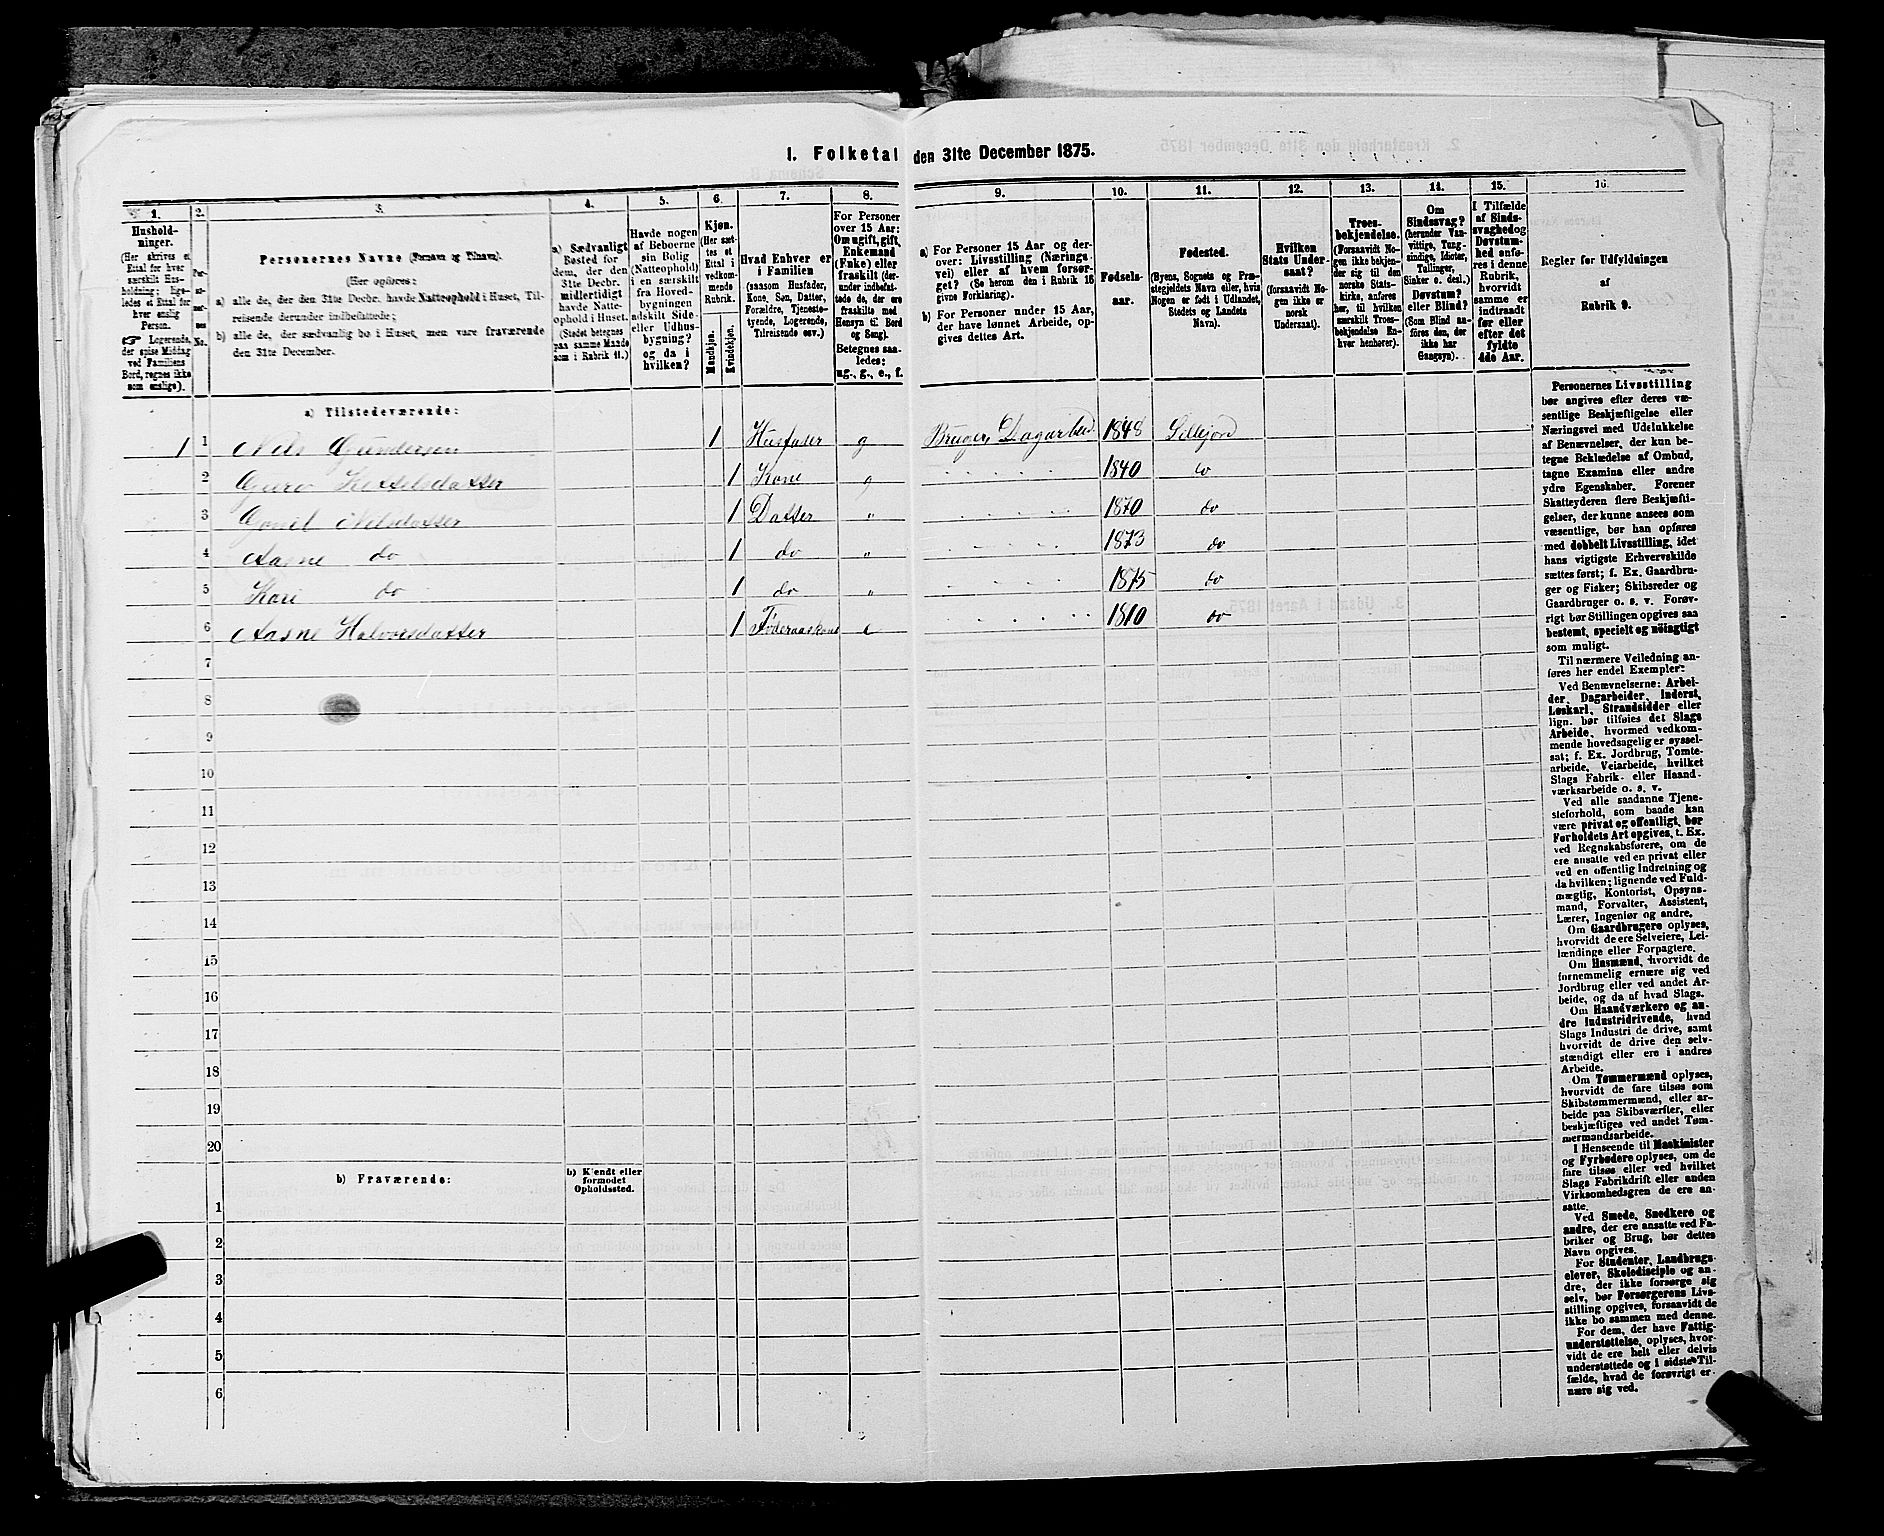 1. Folketal den 31te December 1875.
1. 2. 3. 4. 5. 6. 7. 8. 9. 10. 11. 12. 13. 14. 15. 16.
Husholdninger.
(Her skrives et
Ettal for hver
særskilt Husholdning;
ligeledes et Ettal for
hver enslig
Person.
☞ Logerende,
der spise Middag
ved Familiens
Bord, regnes ikke
som enslige).
Personernes No.
Personernes Navne (Fornavn og Tilnavn).
(Her opføres:
a) alle de, der den 31te Decbr. havde Natteophold i Huset, Tilreisende derunder indbefattede;
b) alle de, der sædvanlig bo i Huset, men vare fraværende
den 31te December.
a) Sædvanligt
Bosted for
dem, der den
31te Decbr.
midlertidigt
havde Natteophold i Huset.
(Stedet betegnes
paa samme Maade
som i Rubrik 11.)
Havde nogen
af Beboerne
sin Bolig
(Natteophold)
i en særskilt
fra Hovedbygningen
adskilt Side-
eller Udhusbygning?
og da i
hvilken?
Kjøn.
(Her sættes et
Ettal i
vedkommende
Rubrik.
Mandkjøn.
Kvindekjøn.
Hvad Enhver er
i Familien
(saasom Husfader,
Kone, Søn, Datter,
Forældre, Tjenestetyende, Logerende,
Tilreisende osv.)
For Personer
over 15 Aar:
Om ugift, gift,
Enkemand
(Enke) eller
fraskilt (derunder indbefattede de, der ere
fraskilte med
Hensyn til Bord
og Seng).
Betegnes saaledes:
ug., g., e., f.
a) For Personer 15 Aar og derover: Livsstilling (Næringsvei) eller af hvem forsørget? (Se herom den i Rubrik 16
givne Forklaring).
b) For Personer under 15 Aar,
der have lønnet Arbeide, opgives dettes Art.
Fødsels-
aar.
Fødested.
(Byens, Sognets og Præstegjeldets Navn eller, hvis
Nogen er født i Udlandet,
Stedets og Landets
Navn).
Hvilken
Stats Undersaat?
(forsaavidt Nogen ikke er
norsk
Undersaat).
Troesbekjendelse.
(Forsaavidt Nogen ikke bekjender sig til den
norske Statskirke, anføres
her, til hvilken
særskilt Troesbekjendelse Enhver henhører).
Om
Sindssvag?
(herunder Vanvittige, Tungsindige, Idioter,
Tullinger,
Sinker o. desl.)
Døvstum?
eller Blind?
(Som Blind anføres den, der
ikke har
Gangsyn).
I Tilfælde
af Sindssvaghed og
Døvstumhed anføres i denne
Rubrik,
hvorvidt
samme er
indtraadt
før eller
efter det
fyldte
4de Aar.
Regler for Udfyldningen
af
Rubrik 9.
a) Tilstedeværende:
1 1 Nels Gundersen 1 Husfader g Bruger, Dagarbeid. 1848 Sillejord
2 Guro Kettelsdatter 1 Kone g 1840 do
3 Gonil Nelsdatter 1 Datter " 1870 do
4 Aasne do 1 do " 1873 do
5 Kari do 1 do " 1875 do
6 Aasne Halvorsdatter 1 Føderaaskone e 1810 do
7
8
9
10
11
12
13
14
15
16
17
18
19
20
b) Fraværende: b) Kjendt eller
formodet
Opholdssted.
1
2
3
4
5
6
Personernes Livsstilling
bør angives efter deres væsentlige Beskjæftigelse eller
Næringsvei med Udelukkelse
af Benævnelser, der kun betegne Beklædelse af Ombud,
tagne Examina eller andre
ydre Egenskaber. Forener
Skatteyderen flere Beskjæftigelser, der kunne ansees som
væsentlige, bør han opføres
med dobbelt Livsstilling, idet
hans vigtigste Erhvervskilde
sættes først; f. Ex. Gaardbruger og Fisker; Skibsreder og
Gaardbruger o. s. v. Forøvrigt bør Stillingen opgives saa
bestemt, specielt og nöiagtigt
som muligt.
Til nærmere Veiledning anføres her endel Exempler:
Ved Benævnelserne: Arbeider, Dagarbeider, Inderst,
Løskarl, Strandsidder eller
lign. bør tilføies det Slags
Arbeide, hvormed vedkommende hovedsagelig er sysselsat; f. Ex. Jordbrug, Tomtearbeide, Veiarbeide, hvilket
Slags Fabrik- eller Haandværksarbeide o. s. v.
Ved alle saadanne Tjenesteforhold, som baade kan
være privat og offentligt, bør
Forholdets Art opgives, t. Ex.
ved Regnskabsførere, om de
ere ansatte ved en privat eller
ved en offentlig Indretning og
da hvilken; lignende ved Fuldmægtig, Kontorist, Opsynsmand, Forvalter, Assistent,
Lærer, Ingeniør og andre.
Om Gaardbrugere oplyses,
hvorvidt de ere Selveiere, Leilændinge eller Forpagtere.
Om Husmænd, hvorvidt de
fornemmelig ernære sig ved
Jordbrug eller ved andet Arbeide, og da af hvad Slags.
Om Haandværkere og andre Industridrivende, hvad
Slags Industri de drive, samt
hvorvidt de drive den selvstændigt eller ere i andres
Arbeide.
Om Tømmermænd oplyses,
hvorvidt de fare tilsøs som
Skibstømmermænd, eller arbeide paa Skibsværfter, eller
beskjæftiges ved andet Tømmermandsarbeide.
I Henseende til Maskinister
og Fyrbødere oplyses, om de
fare tilsøs eller ved hvilket
Slags Fabrikdrift eller anden
Virksomhedsgren de ere ansatte.
Ved Smede, Snedkere og
andre, der ere ansatte ved Fabriker og Brug, bør dettes
Navn opgives.
For Studenter, Landbrugselever, Skoledisciple og andre, der ikke forsørge sig
selv, bør Forsørgerens Livsstilling opgives, forsaavidt de
ikke bo sammen med denne.
For dem, der have Fattigunderstøttelse, oplyses, hvorvidt de ere helt eller delvis
understøttede og i sidste Tilfælde, hvad de forøvrigt ernære sig ved.